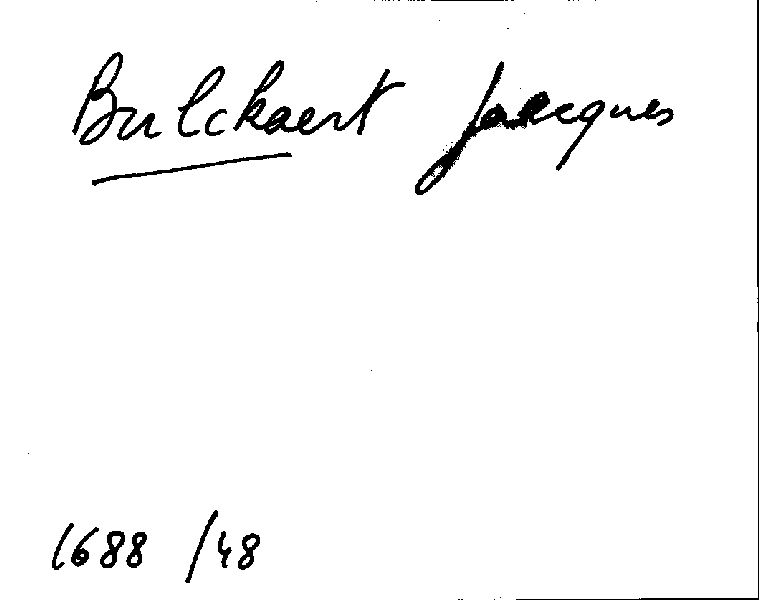 Bulckaert Jacques
1688 /48